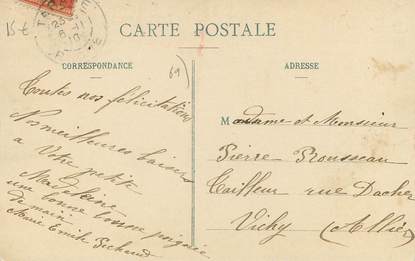 15 €
CARTE POSTALE
CORRESPONDANCE
ADRESSE
69
Toutes nos félicitations
Nos meilleures baisers
a votre petite
Madeleine
une bonne bonne poignée
de main
Marie Emile
Madame et Monsieur
Pierre Rousseau
Tailleur rue Dacher
Vichy (Allier)